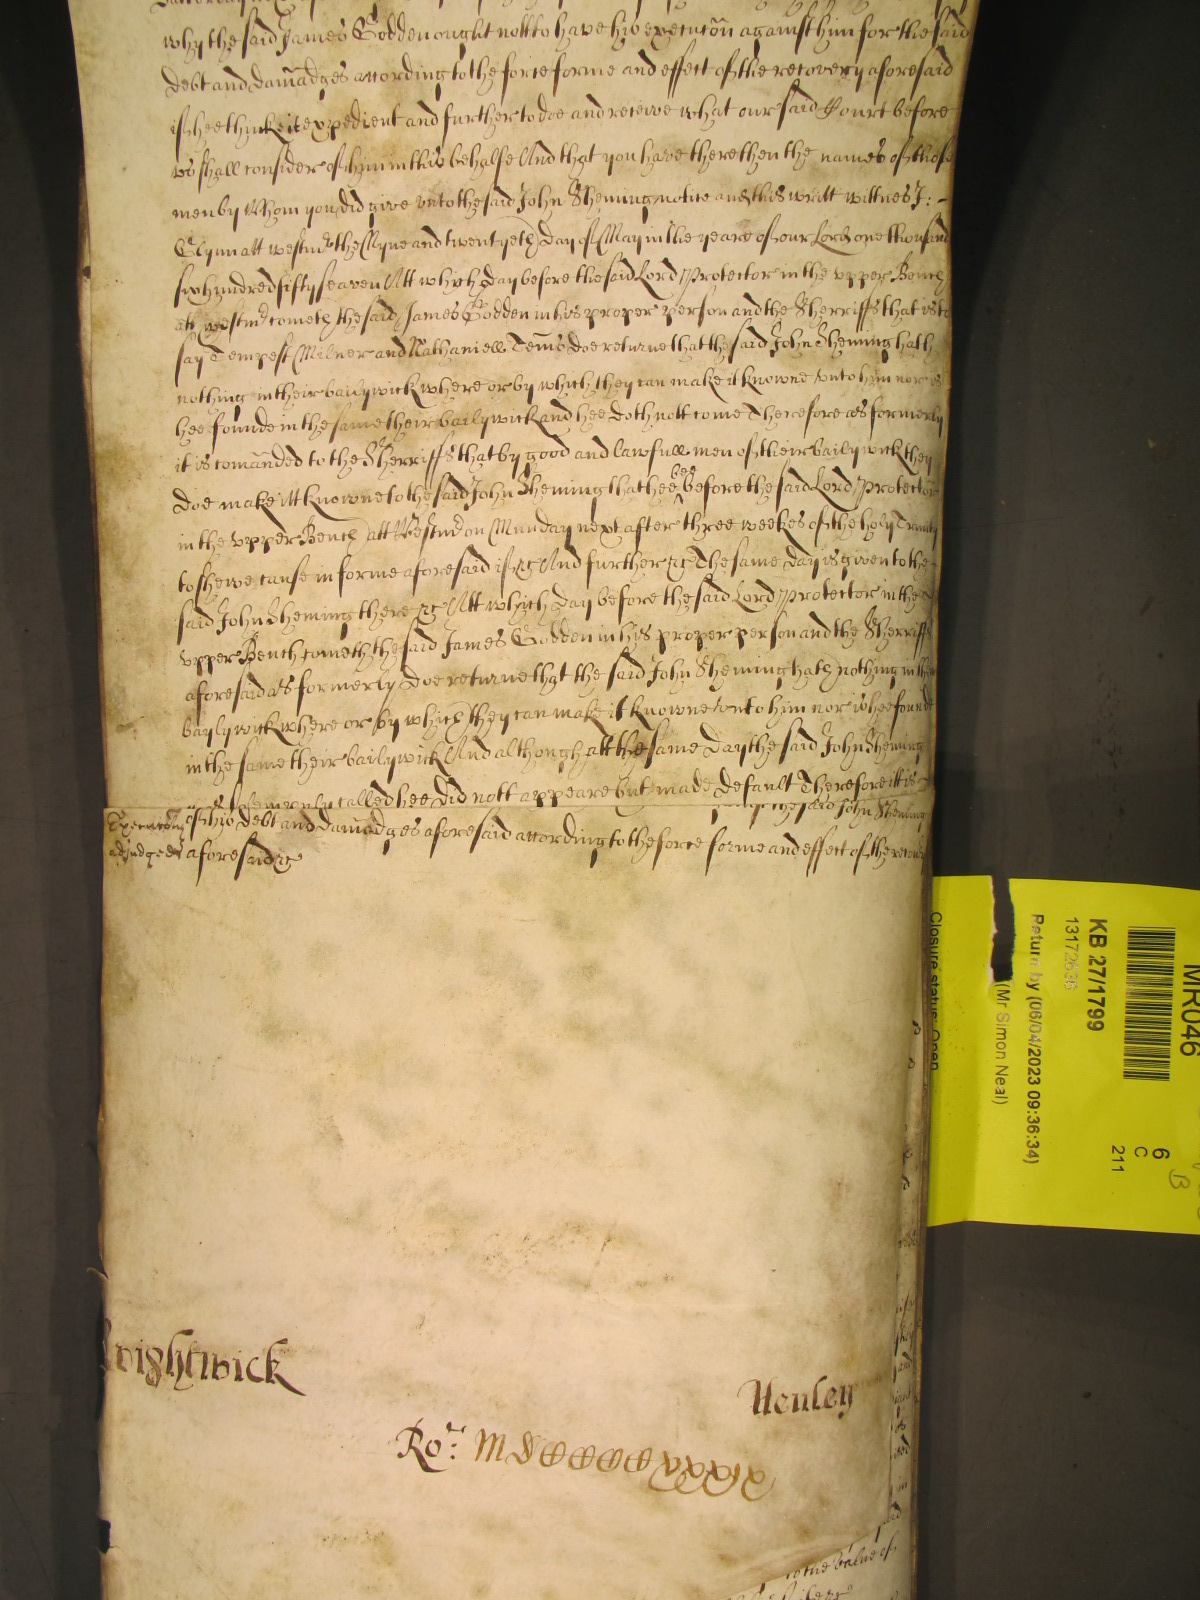 why the said James Godden ought nott to have his execucõn against him for the said
debt and damãdges according to the force forme and effect of the recovery aforesaid
if hee thinke it expedient and further to doe and receive what our said Court before
us shall consider of him in this behalfe And that you have there then the names of those
men by whom you did give unto the said John Sheming notice and this writt wittnes J: -
Glynn att westmr the Nyne and twentyeth day of May in the yeare of our Lord one thousand
six hundred fifty seaven Att which day before the said Lord Protector in the upper Bench
att westmr cometh the said James Godden in his proper person and the Sherriffs that is to
say Tempest Milner and Nathaniell Tems doe returne that the said John Sheming hath
nothing in their bailywick where or by which they can make it knowne unto him nor is
hee founde in the same their bailywick and hee doth nott come Therefore as formerly
it is comãnded to the Sherriffs that by good and lawfull men of their bailywick they
doe make itt knowne to the said John Sheming that hee bee before the said Lord Protector
in the upper Bench att Westmr on Munday next after three weekes of the holy Trinity
to shewe cause in forme aforesaid if &c And further &c The same day is given to the
said John Sheming there &c Att which day before the said Lord Protector in the
upper Bench cometh the said James Godden in his proper person and the Sherriffs
aforesaid as formerly doe returne that the said John Sheming hath nothing in their
baylywick where or by which they can make it knowne unto him nor is hee founde
in the same their bailywick And although att the same day the said John Sheming
solempnly called hee did nott appeare but made default Therefore itt is
the said John Sheming
Execucõn of his debt and damãdges aforesaid according to the force forme and effect of the recovery
adjudged aforesaid &c
wightwick
Henley
Ro:
MR046
KB 27/1799
13172636
Return by (06/04/2023 09:36:34)
(Mr Simon Neal)
Closure status: Open
6
C
211
B
value of